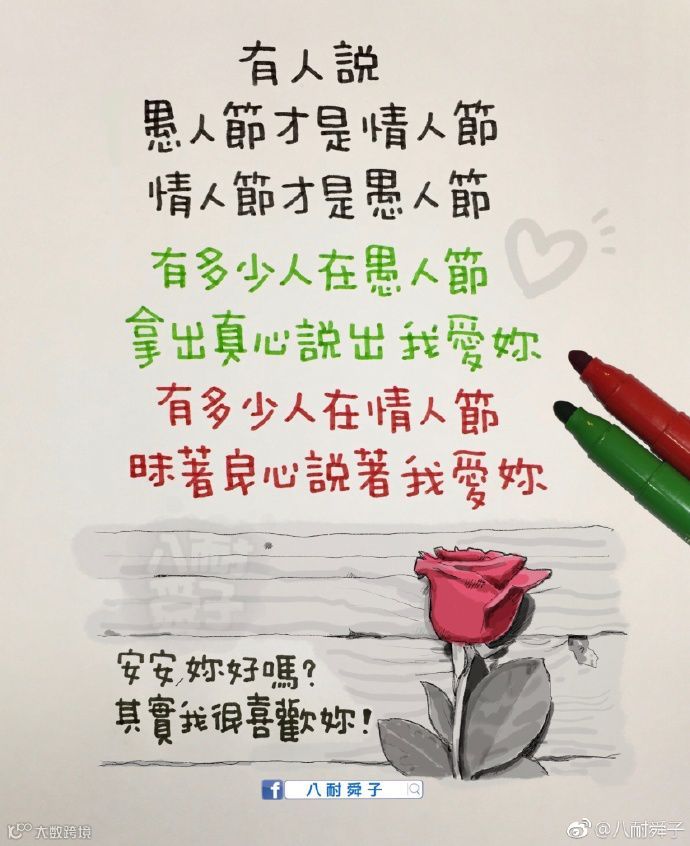 有人說
愚人節才是情人節
情人節才是愚人節
有多少人在愚人節
拿出真心說出我愛妳
有多少人在情人節
昧著良心說著我愛妳
八耐
舜子
安安,妳好嗎?
其實我很喜歡妳!
f 八耐舜子
10100 大数跨境
@八耐舜子